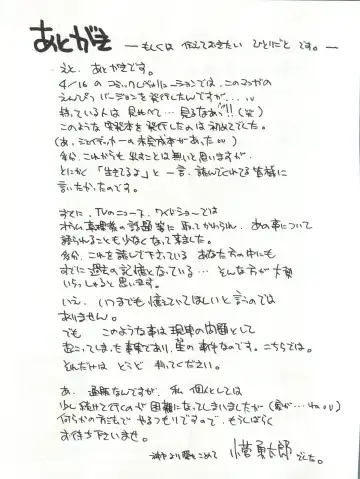 あとがき
— もしくは 伝えておきたい ひとりごと です。—
えと、あとがきです。
4/16 の コミックレヴォリューションでは、このマンガの
えんぴつ バージョンを発行したんですが...
持っている人は 見比べて... 見るなあっ!!(笑)
このような 実験本を発行したのは 初めてでした。
多分、これからも 出すことは無いと思いますが、
とにかく「生きてるよ」と一言、読んでくれてる皆様に
言いたかったのです。
すでに、TVのニュース、ワイドショーでは
オウム真理教の話題等に 取ってかわられ、あの事について
語られることも少なくなって来ました。
多分、これを読んで下さっている あなた方の中にも
すでに過去の記憶となっている... そんな方が 大勢
いらっしゃると思います。
いえ、いつまでも憶えていてほしいと言うのでは
ありません。
でも このような事は現実の問題として
起こってしまった事実であり、 の事件なのです。こちらでは。
それだけは どうぞ 知ってください。
あ、通販なんですが、私 個人としては
少し続けて行くのが困難になってしまいましたが
何らかの方法で やるつもりですので、もうしばらく
お待ち下さいませ。
 より愛をこめて 小菅勇太郎 でした。